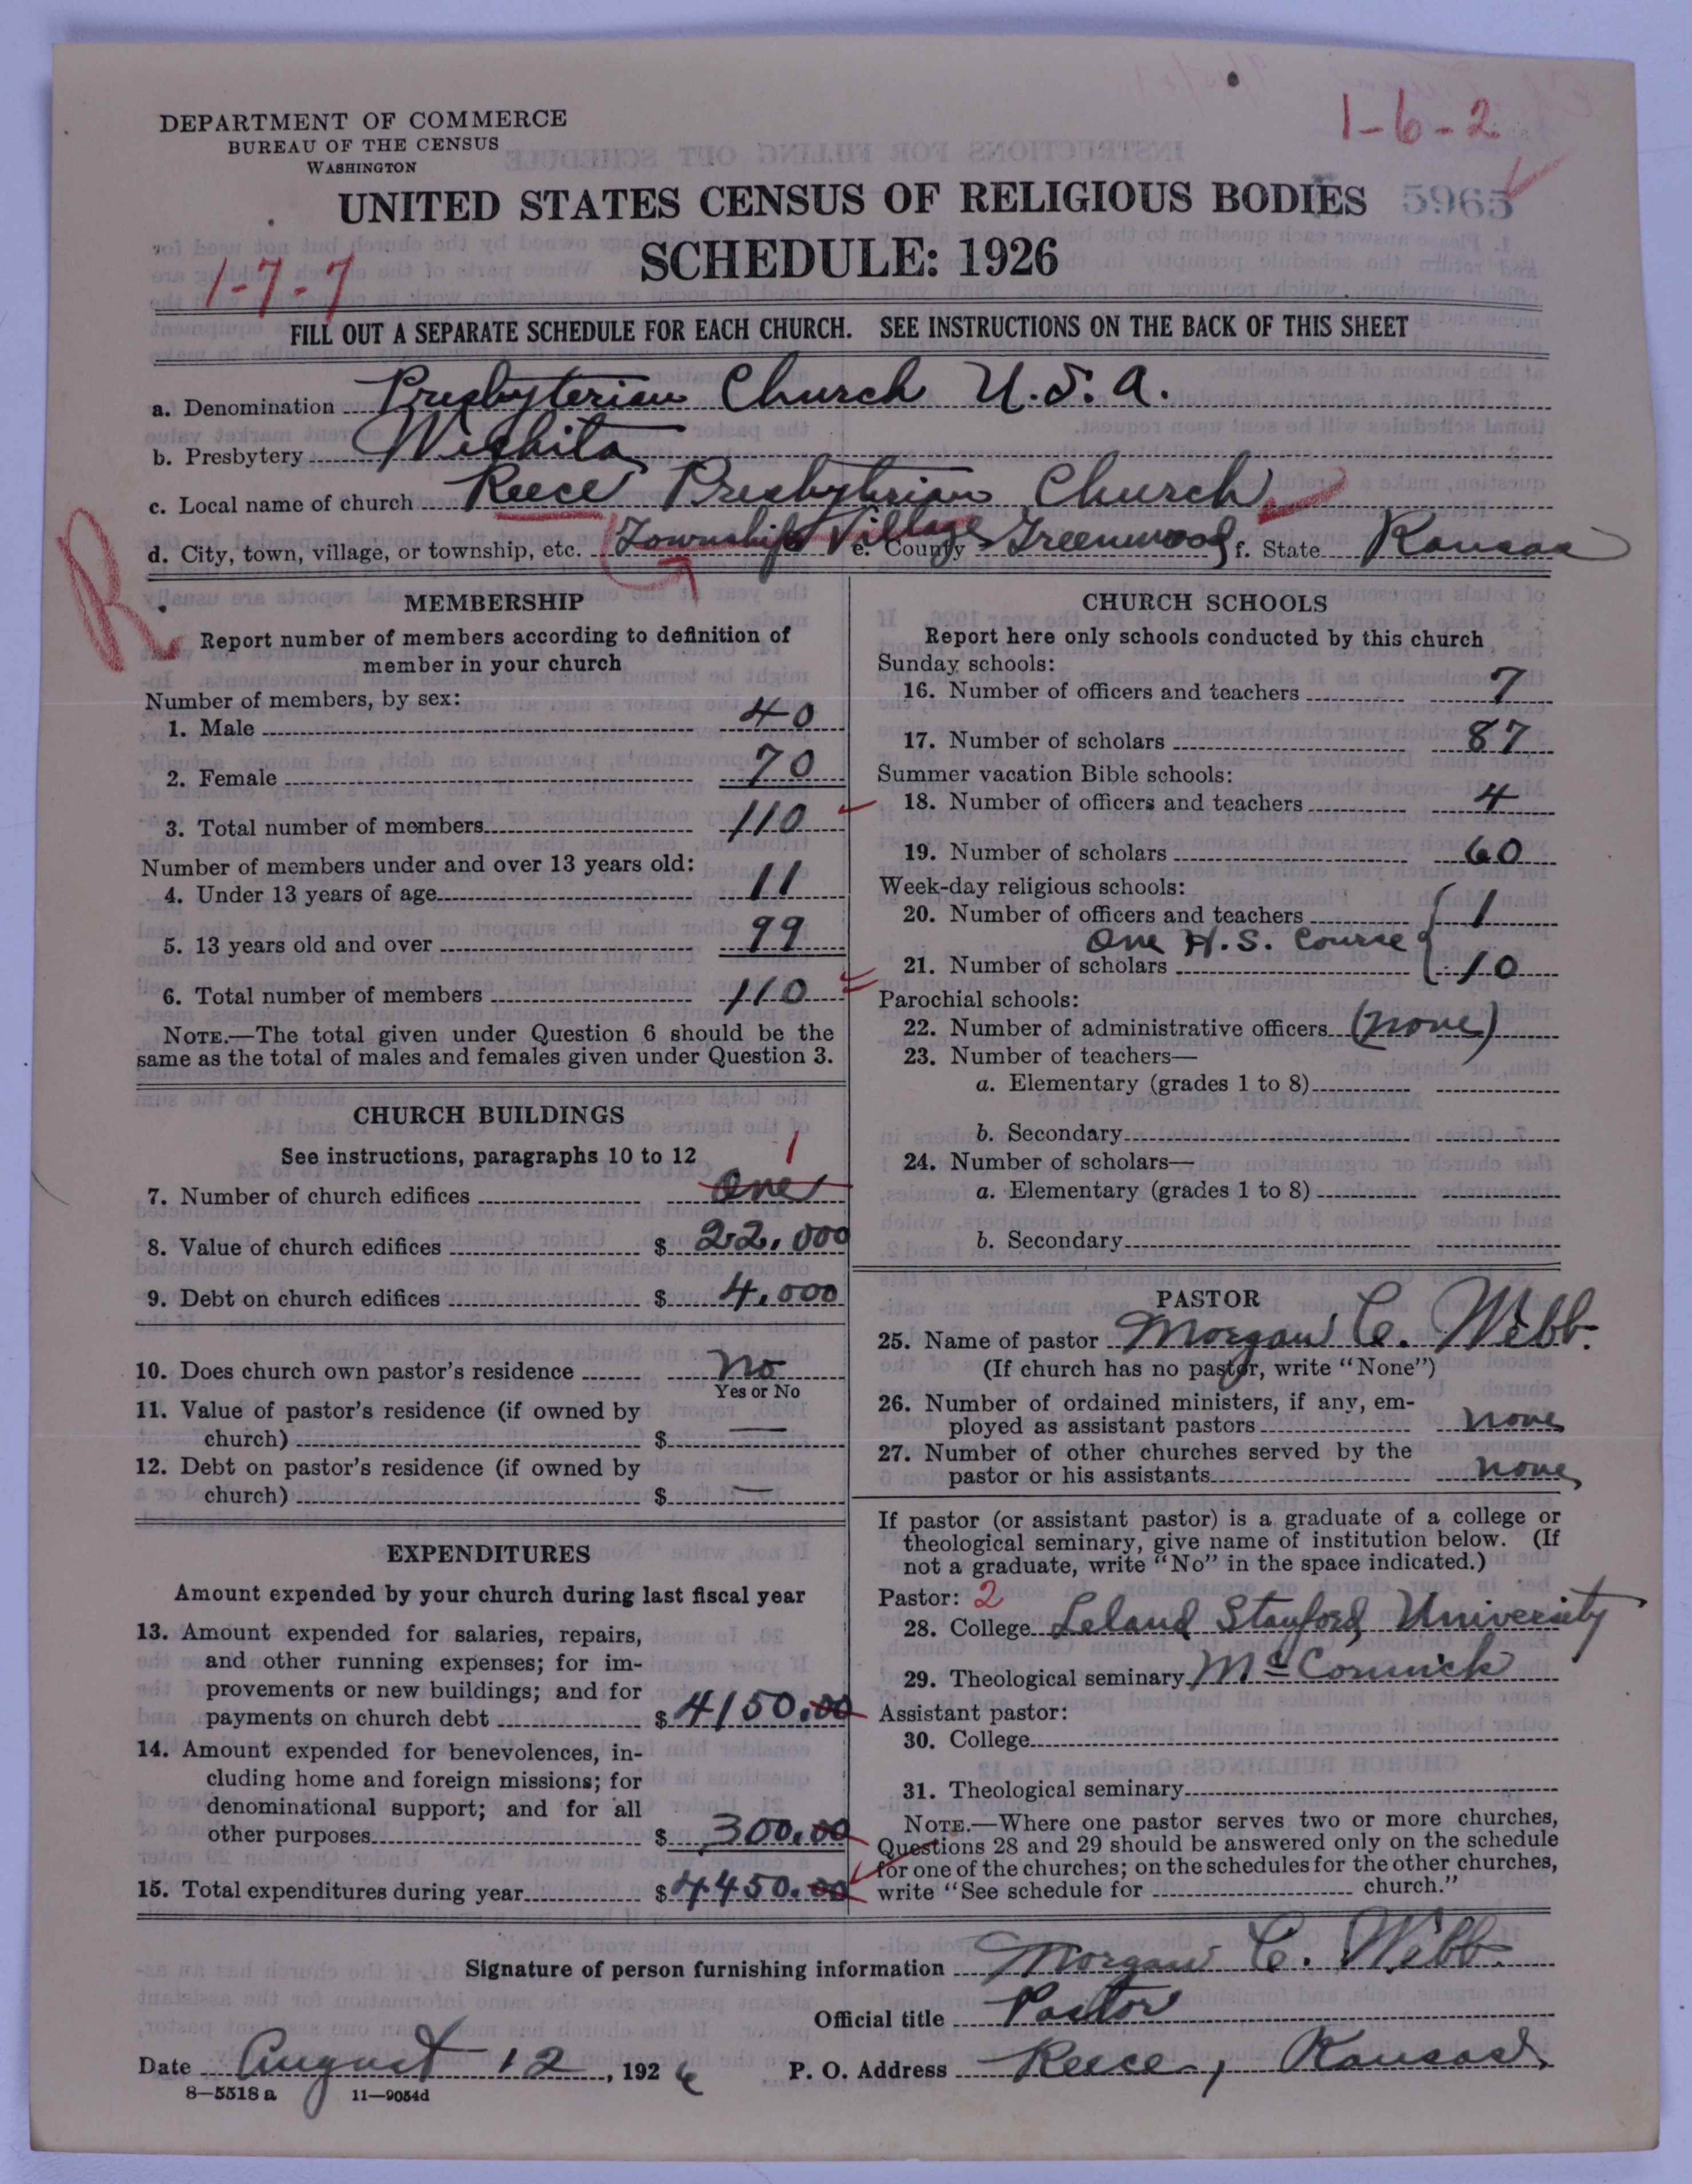 1-6-2
DEPARTMENT OF COMMERCE
BUREAU OF THE CENSUS
WASHINGTON
UNITED STATES CENSUS OF RELIGIOUS BODIES 5965
SCHEDULE: 1926
1-7-7
FILL OUT A SEPARATE SCHEDULE FOR EACH CHURCH. SEE INSTRUCTIONS ON THE BACK OF THIS SHEET
a. Denomination Presbyterian Church U.S.A.
b. Presbytery Wichita
c. Local name of church Reece Presbyterian Church
d. City, town, village, or township, etc. Township Village e. County Greenwood f. State Kansas
R
MEMBERSHIP
Report number of members according to definition of
member in your church
Number of members, by sex:
1. Male 40
2. Female 70
3. Total number of members 110
Number of members under and over 13 years old:
4. Under 13 years of age 11
5. 13 years old and over 99
6. Total number of members 110
NOTE.—The total given under Question 6 should be the
same as the total of males and females given under Question 3.
CHURCH BUILDINGS
See instructions, paragraphs 10 to 12 1
7. Number of church edifices One
8. Value of church edifices $ 22,000
9. Debt on church edifices $ 4,000
10. Does church own pastor's residence No
Yes or No
11. Value of pastor's residence (if owned by
church) $ —
12. Debt on pastor's residence (if owned by
church) $ —
EXPENDITURES
Amount expended by your church during last fiscal year
13. Amount expended for salaries, repairs,
and other running expenses; for im-
provements or new buildings; and for
payments on church debt $ 4150.00
14. Amount expended for benevolences, in-
cluding home and foreign missions; for
denominational support; and for all
other purposes $ 300.00
15. Total expenditures during year $ 4450.00
CHURCH SCHOOLS
Report here only schools conducted by this church
Sunday schools:
16. Number of officers and teachers 7
17. Number of scholars 87
Summer vacation Bible schools:
18. Number of officers and teachers 4
19. Number of scholars 60
Week-day religious schools:
20. Number of officers and teachers 1
One H.S. Course
21. Number of scholars 10
Parochial schools:
22. Number of administrative officers (none)
23. Number of teachers—
a. Elementary (grades 1 to 8)
b. Secondary
24. Number of scholars—
a. Elementary (grades 1 to 8)
b. Secondary
PASTOR
25. Name of pastor Morgan C. Webb.
(If church has no pastor, write "None")
26. Number of ordained ministers, if any, em-
ployed as assistant pastors none
27. Number of other churches served by the
pastor or his assistants none
If pastor (or assistant pastor) is a graduate of a college or
theological seminary, give name of institution below. (If
not a graduate, write "No" in the space indicated.)
Pastor: 2
28. College Leland Stanford University
29. Theological seminary McCormick
Assistant pastor:
30. College
31. Theological seminary
NOTE.—Where one pastor serves two or more churches,
Questions 28 and 29 should be answered only on the schedule
for one of the churches; on the schedules for the other churches,
write "See schedule for church."
Signature of person furnishing information Morgan C. Webb.
Official title Pastor
Date August 12, 1926 P. O. Address Reece, Kansas
8—5518a 11—9054d